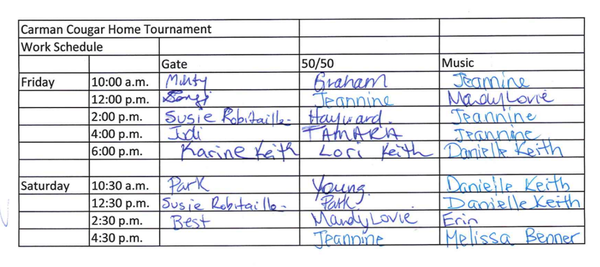 Carman Cougar Home Tournament
Work Schedule
Gate 50/50 Music
Friday 10:00 a.m. Graham Jeannine
12:00 p.m. Jeannine Mandy Lovie
2:00 p.m. Susie Robitaille Hayward Jeannine
4:00 p.m. Jodi TAMARA Jeannine
6:00 p.m. Karine Keith Lori Keith Danielle Keith
Saturday 10:30 a.m. Park Young Danielle Keith
12:30 p.m. Susie Robitaille Park Danielle Keith
2:30 p.m. Best Mandy Lovie Erin
4:30 p.m. Jeannine Melissa Benner